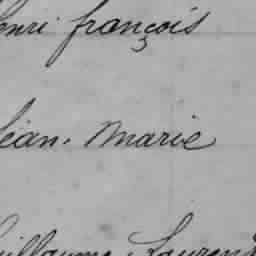 henri françois
Jean. Marie
Guillaume Laurent